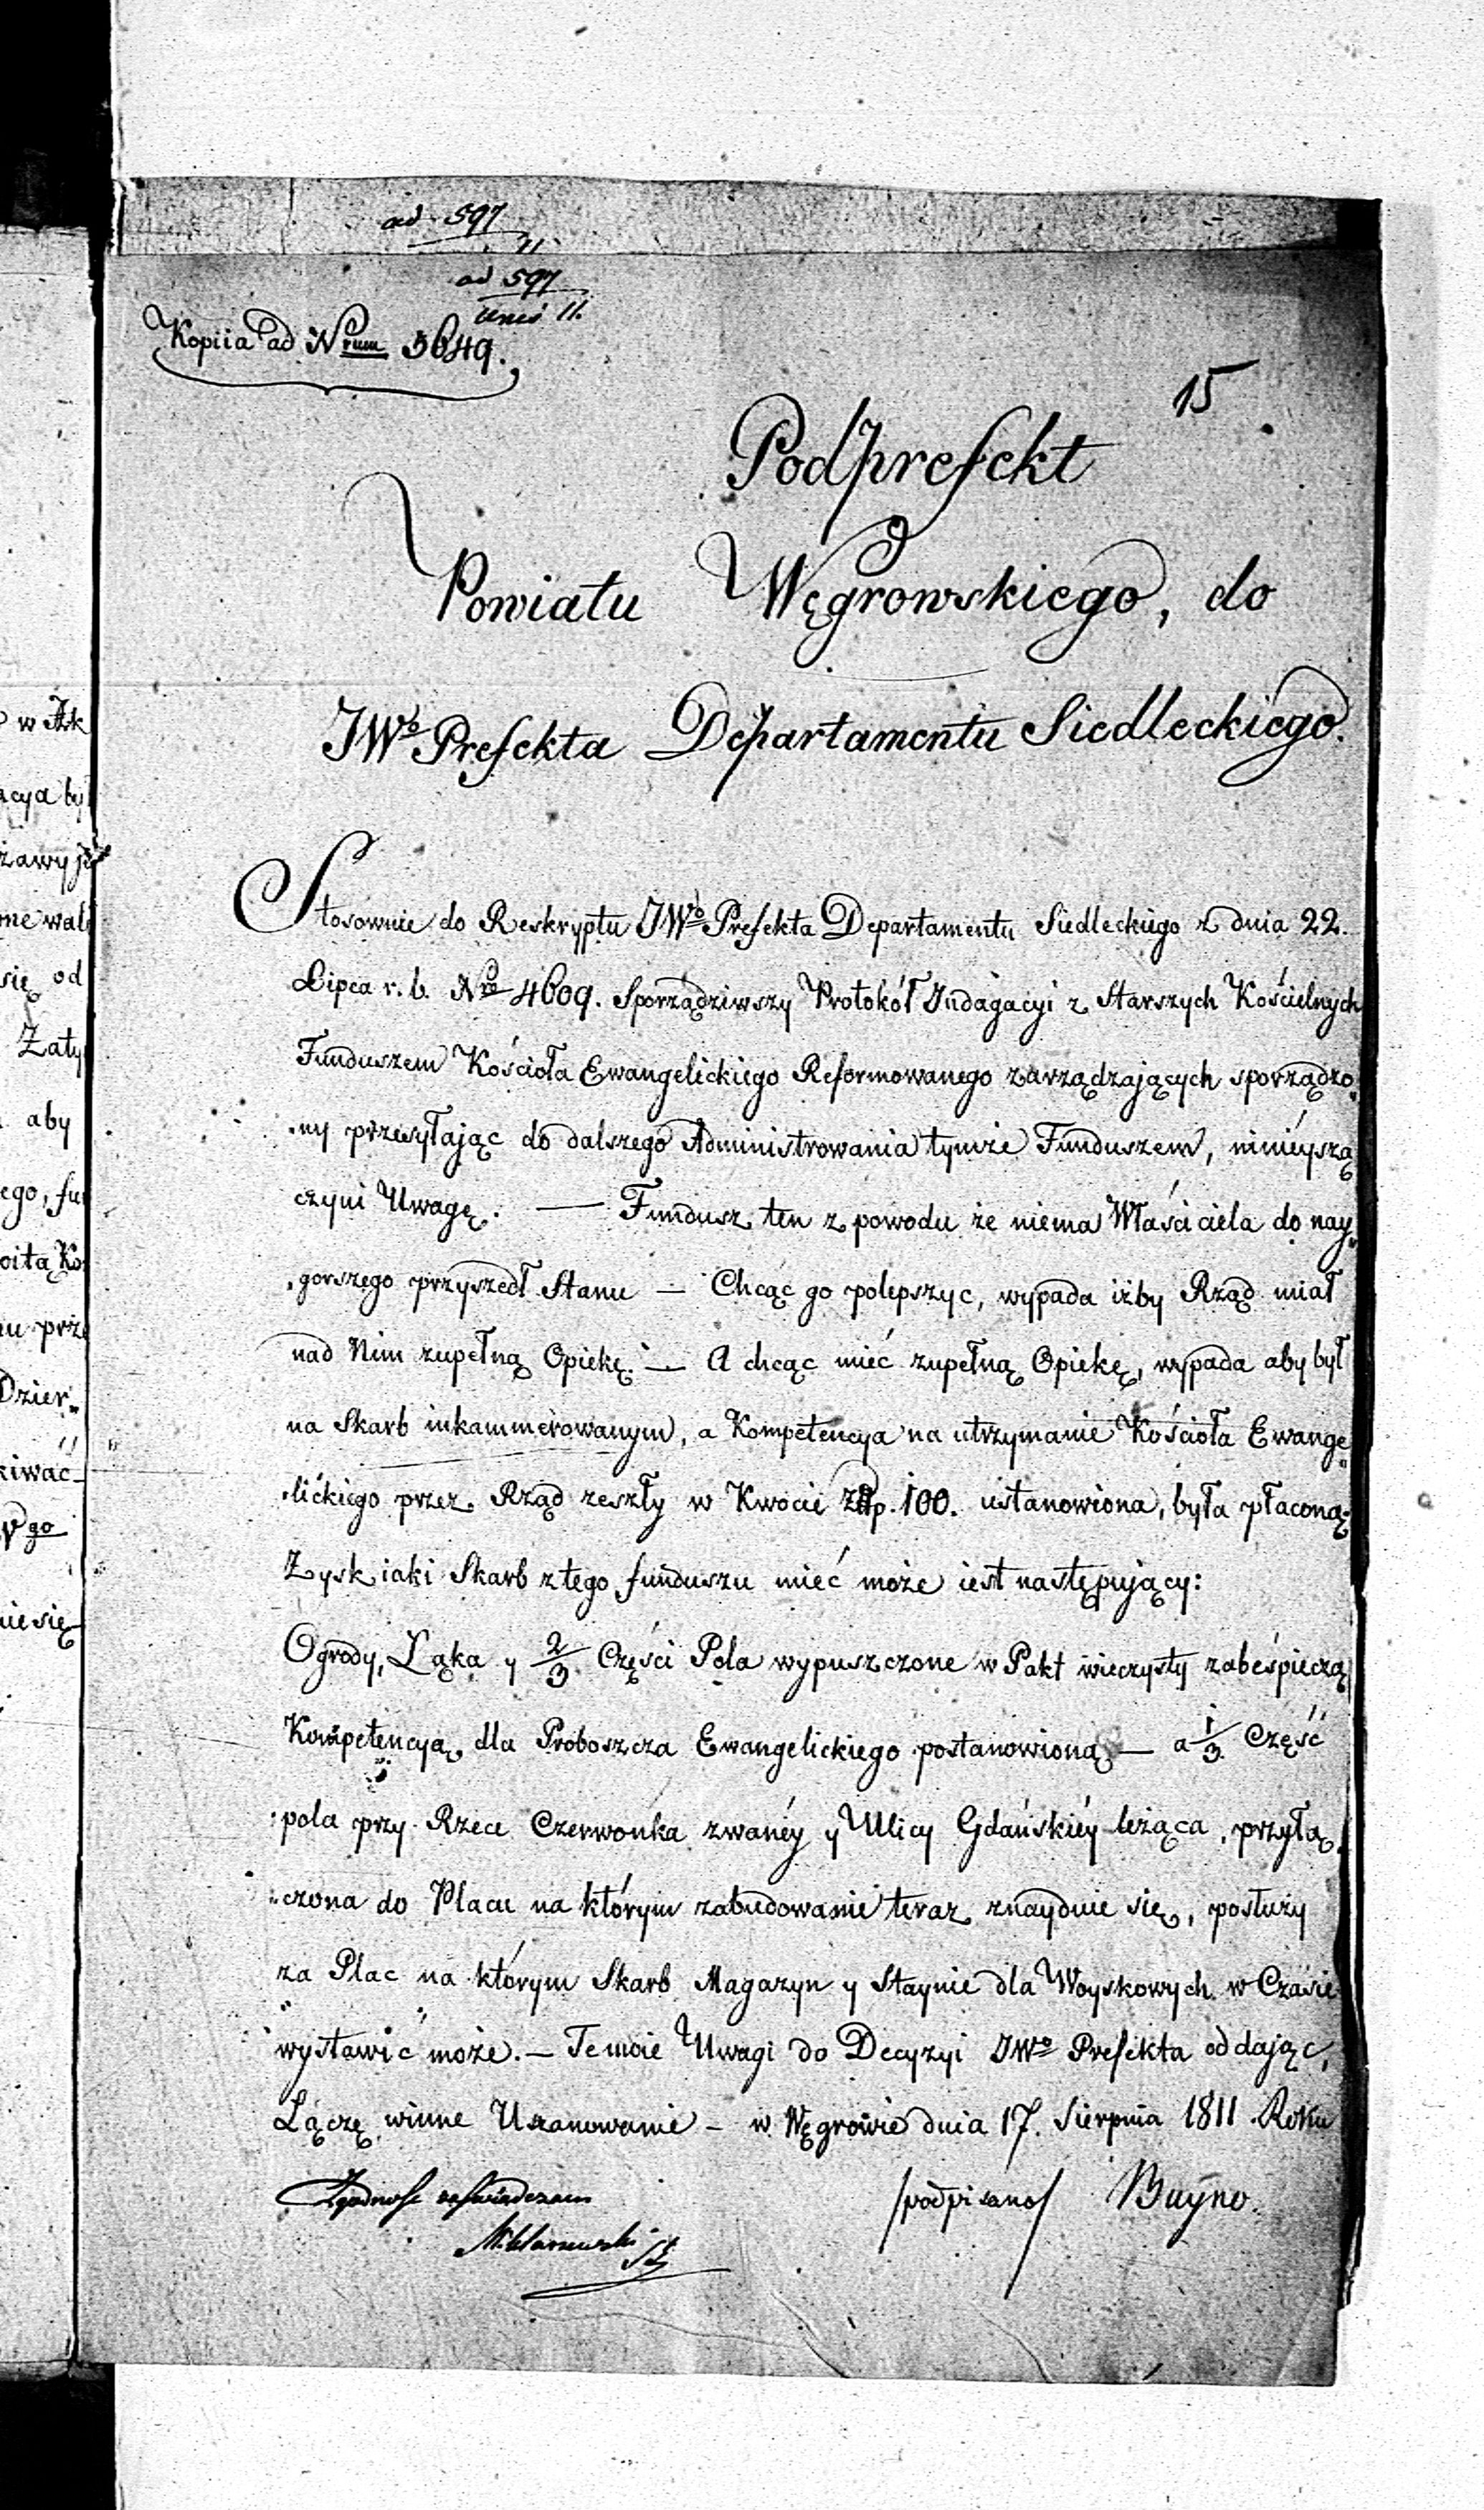 ad 597
11
ad 597
11.
Kopiia ad Nrum 5649.
15
Podprefekt
Powiatu Węgrowskiego, do
JWo Prefekta Departamentu Siedleckiego.
Stosownie do Reskryptu JWo Prefekta Departamentu Siedleckiego z dnia 22.
Lipca r. b. Nro 4609. Sporządziwszy Protokół Indagacyi z Starszych Kościelnych
Funduszem Kościoła Ewangelickiego Reformowanego zarządzających sporządzo„
„ny przesyłając do dalszego Administrowania tymże Funduszem, ninieyszą
czyni Uwagę. — Fundusz ten z powodu że niema Właściciela do nay„
„gorszego przyszedł Stanu — Chcąc go polepszyc, wypada iżby Rząd miał
nad Nim zupełną Opiekę. — A chcąc mieć zupełną Opiekę, wypada aby był
na Skarb inkammerowanym, a Kompetencya na utrzymanie Kościoła Ewange„
„lickiego przez Rząd zeszły w Kwocie złp. 100. ustanowiona, była płaconą.
Zysk iaki Skarb z tego funduszu mieć może iest następuiący:
Ogrody, Łąka y 2/3 Części Pola wypuszczone w Pakt wieczysty zabeśpieczą
Kompetencyą dla Proboszcza Ewangelickiego postanowioną — a 1/3 Część
pola przy Rzece Czerwonka zwanéy y Ulicy Gdańskiéy leżąca, przyłą„
„czona do Placu na którym zabudowanie teraz znayduie się, posłuży
za Plac na którym Skarb Magazyn y Staynie dla Woyskowych w Czasie
wystawić może. — Te moie Uwagi do Decyzyi JWo Prefekta oddając,
Łączę winne Uszanowanie — w Węgrowie dnia 17. Sierpnia 1811 Roku
/podpisano/ Buyno.
Zgodność zaświadczam
Miklaszewski
w Ak
acya by
żawy j
one wal
się od
Zaty
aby
ego, fu
oitą Ko
u prze
Dzier„
kiwać
Wgo
nie się